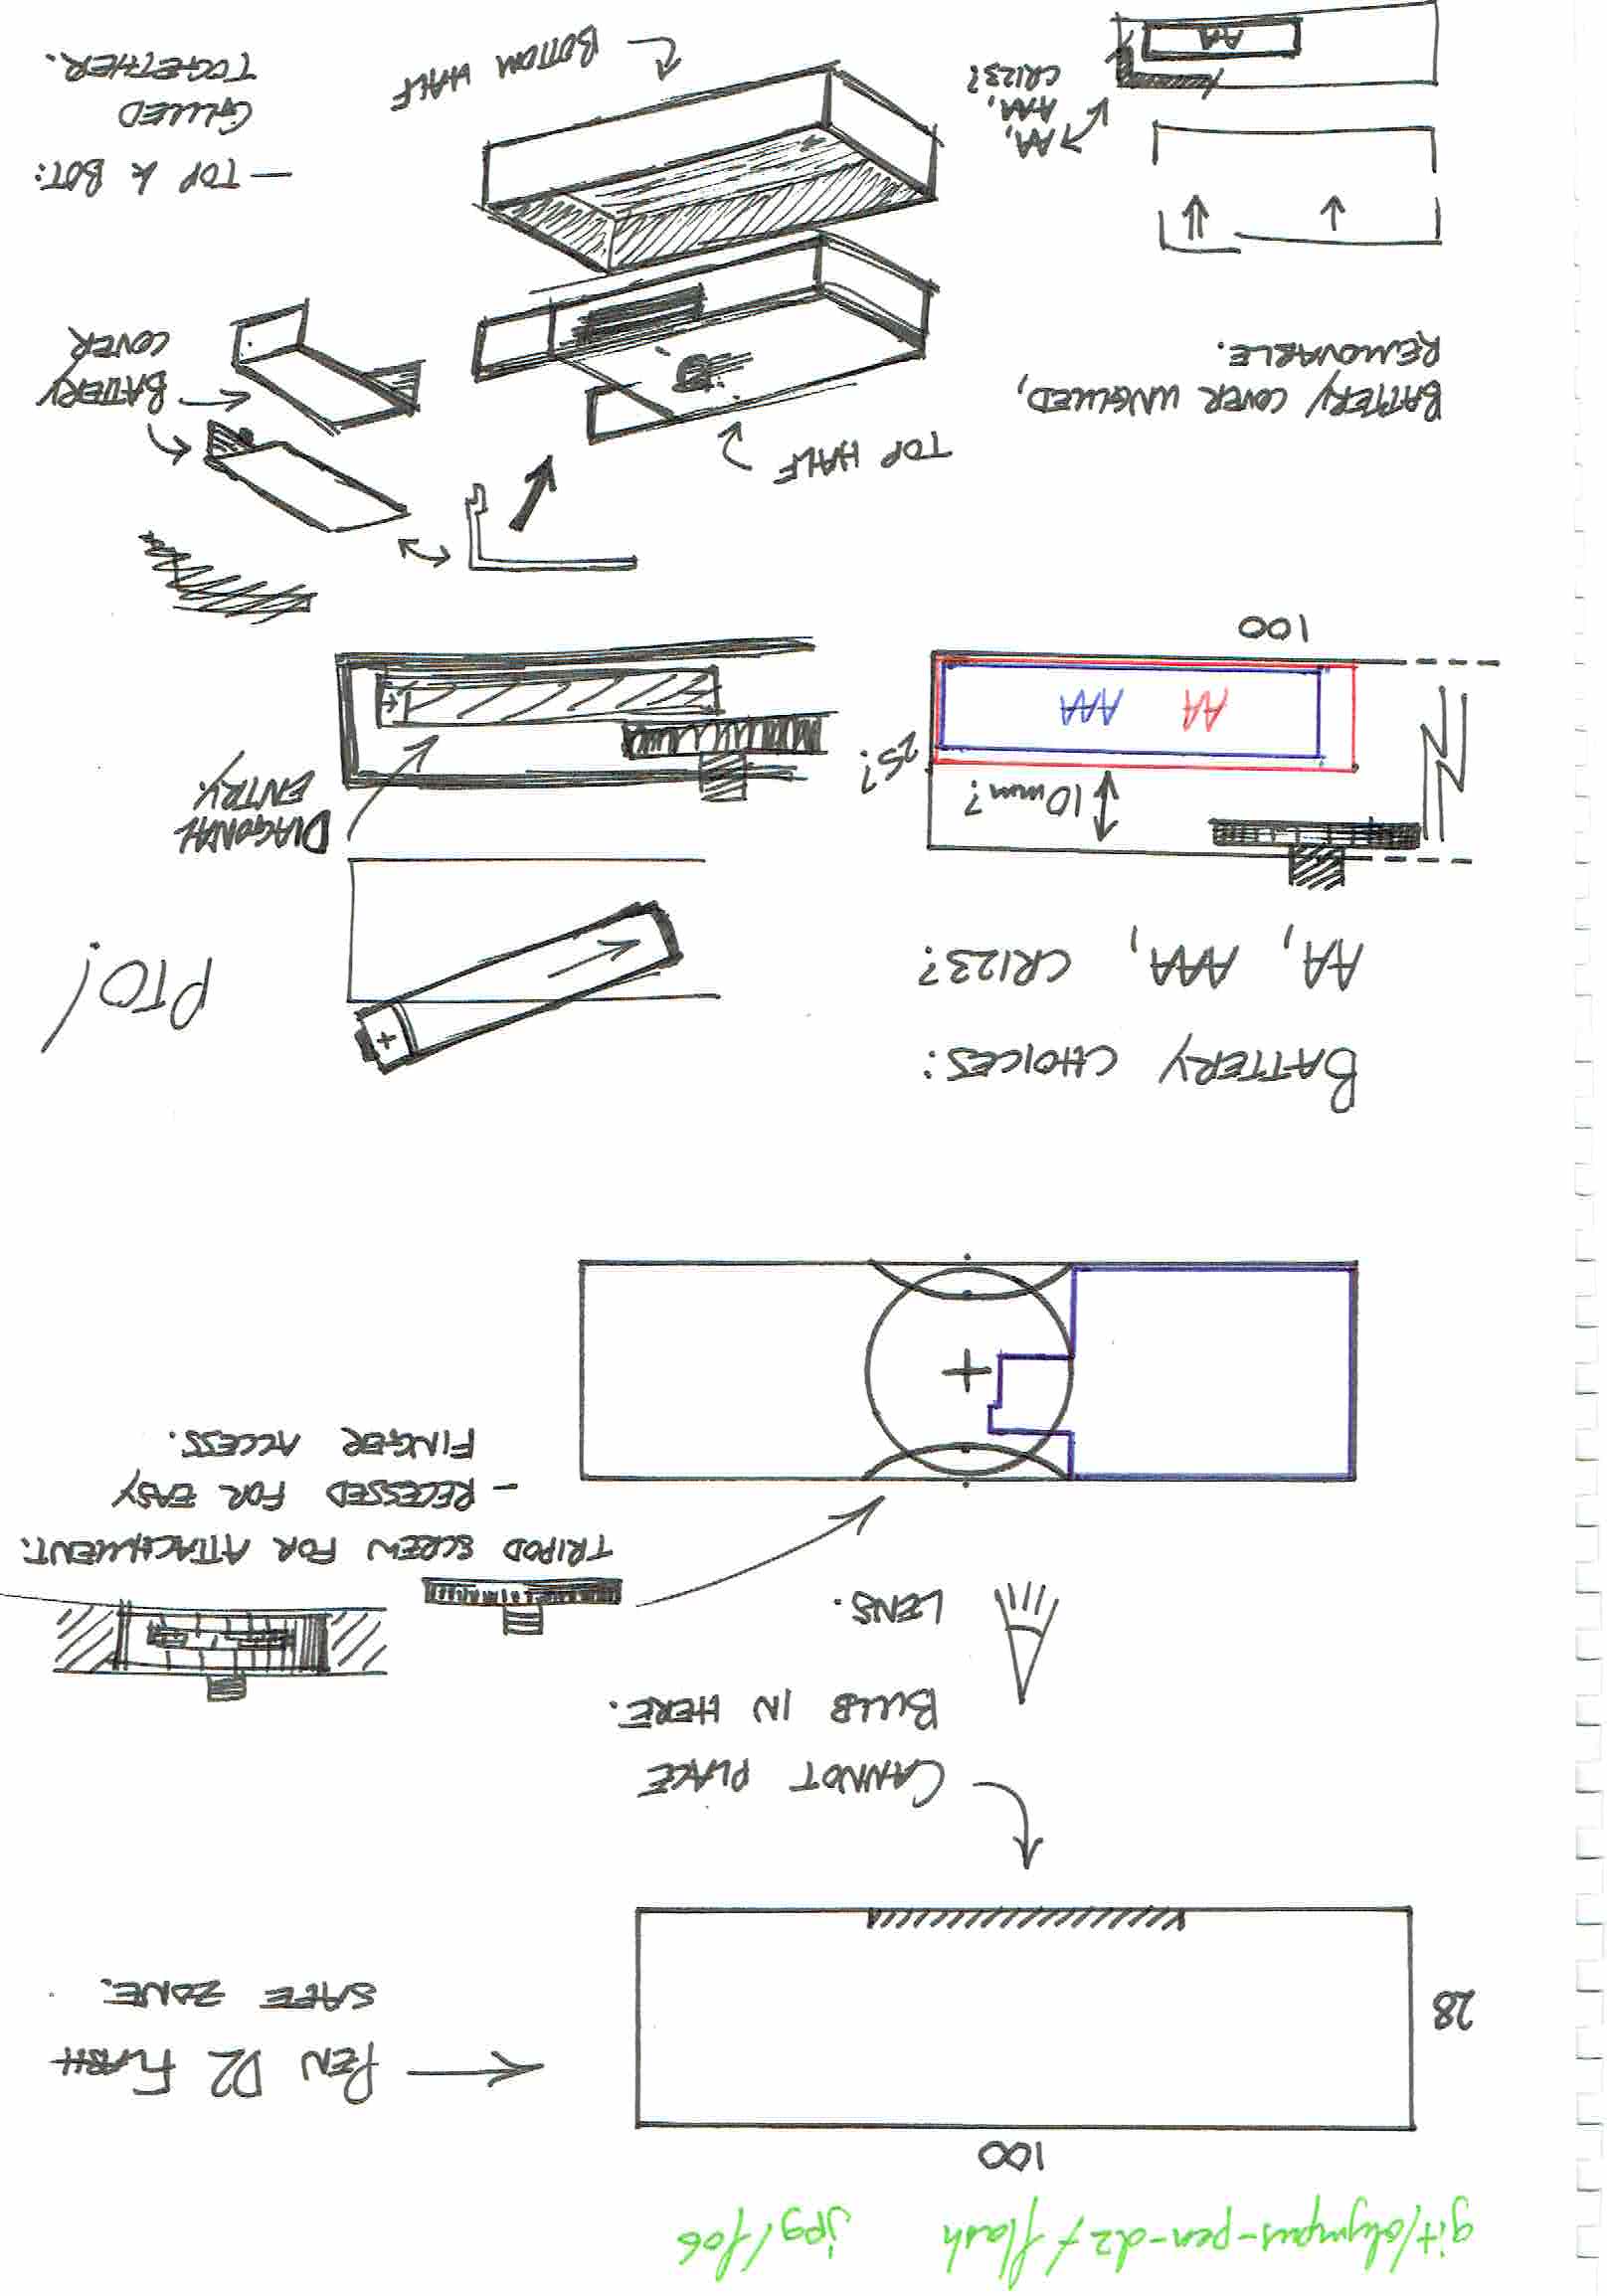 git/olympus-pen-d2/flash jpg/f06
100
28
← PEN D2 FLASH
SAFE ZONE.
CANNOT PLACE
BULB IN HERE.
LENS.
TRIPOD SCREW FOR ATTACHMENT.
- RECESSED FOR EASY
FINGER ACCESS.
+
BATTERY CHOICES:
AA, AAA, CR123?
+
PTO!
10mm?
25?
AA AAA
100
DIAGONAL
ENTRY.
+
TOP HALF
BATTERY COVER UNGLUED,
REMOVABLE.
BATTERY
COVER
AA,
AAA,
CR123?
AA
BOTTOM HALF
- TOP & BOT:
GLUED
TOGETHER.